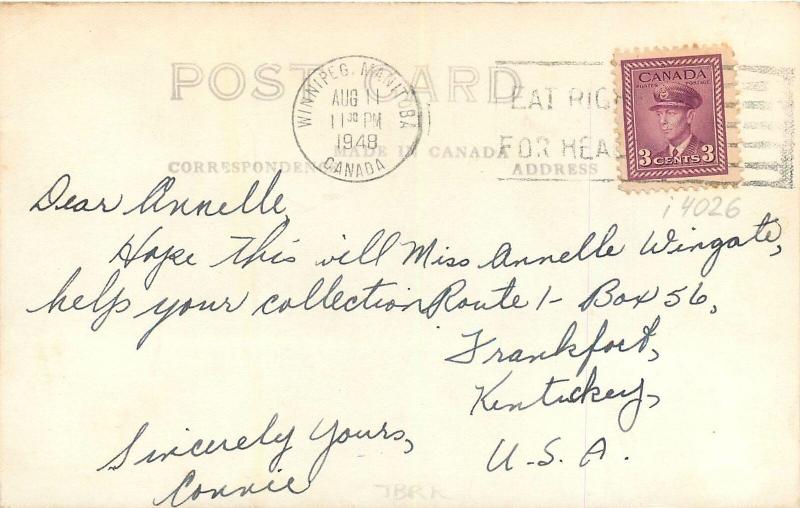 POST CARD
WINNIPEG, MANITOBA
AUG 11
11 30 PM
1948
CANADA
EAT RIGH
FOR HEAL
CANADA
POSTES POSTAGE
3 CENTS 3
CORRESPONDENC
MADE IN CANADA
ADDRESS
i4026
Dear Annelle,
Hope this will
help your collection
Sincerely Yours,
Connie
Miss Annelle Wingate,
Route 1- Box 56,
Frankfort,
Kentuckey,
U.S.A.